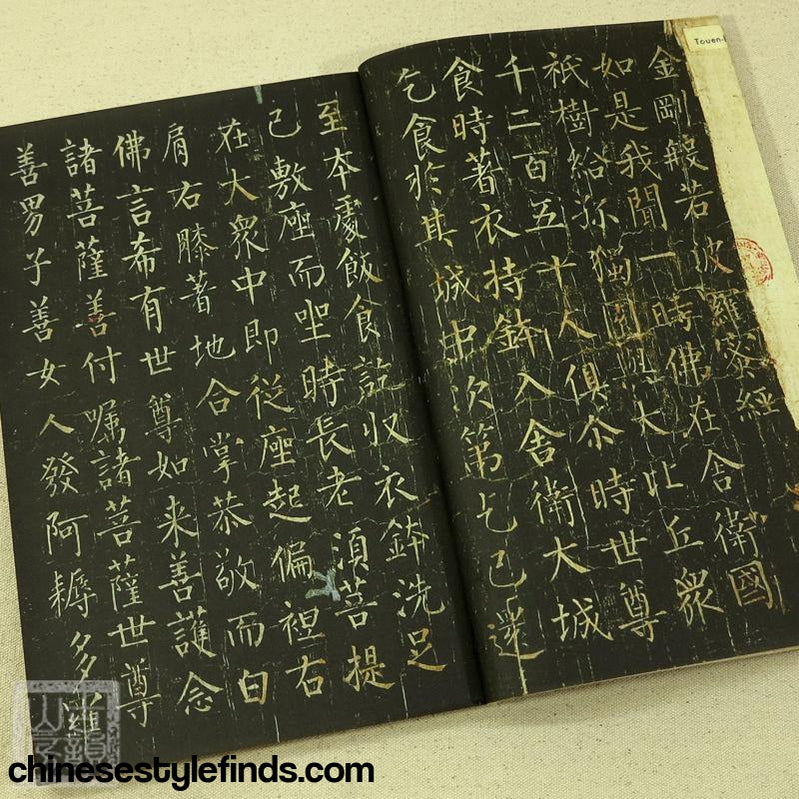 Touen-
金剛般若波羅蜜經
如是我聞一時佛在舍衛國
祇樹給孤獨園與大比丘衆
千二百五十人俱尒時世尊
食時著衣持鉢入舍衛大城
乞食於其城中次第乞已還
至本處飯食訖收衣鉢洗足
已敷座而坐時長老湏菩提
在大衆中即從座起偏袒右
肩右膝著地合掌恭敬而白
佛言希有世尊如来善護念
諸菩薩善付嘱諸菩薩世尊
善男子善女人發阿耨多羅
chinesestylefinds.com